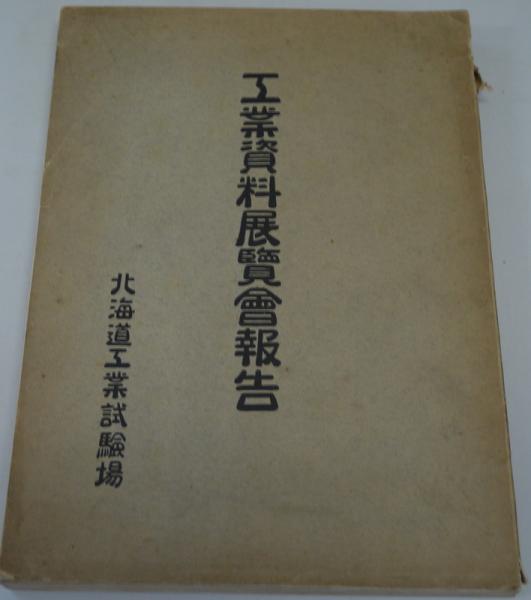 工業資料展覽會報告
北海道工業試驗場